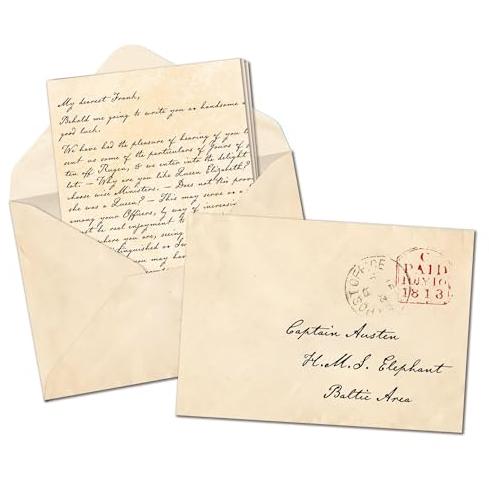 My dearest Frank,
Behold me going to write you as handsome a
good luck.
We have had the pleasure of hearing of you l
cent us some of the particulars of Yours of
ten off Rugen, & we enter into the delight
lot. — Why are you like Queen Elizabeth?
choose wise Ministers. — Does not this prove
she was a Queen? — This may serve as a
among your Officers, by way of increasi
be real enjoyment to
where you are, seeing
distinguished as
you may have
POST OFFICE
C
PAID
1813
Captain Austen
H.M.S. Elephant
Baltic Area